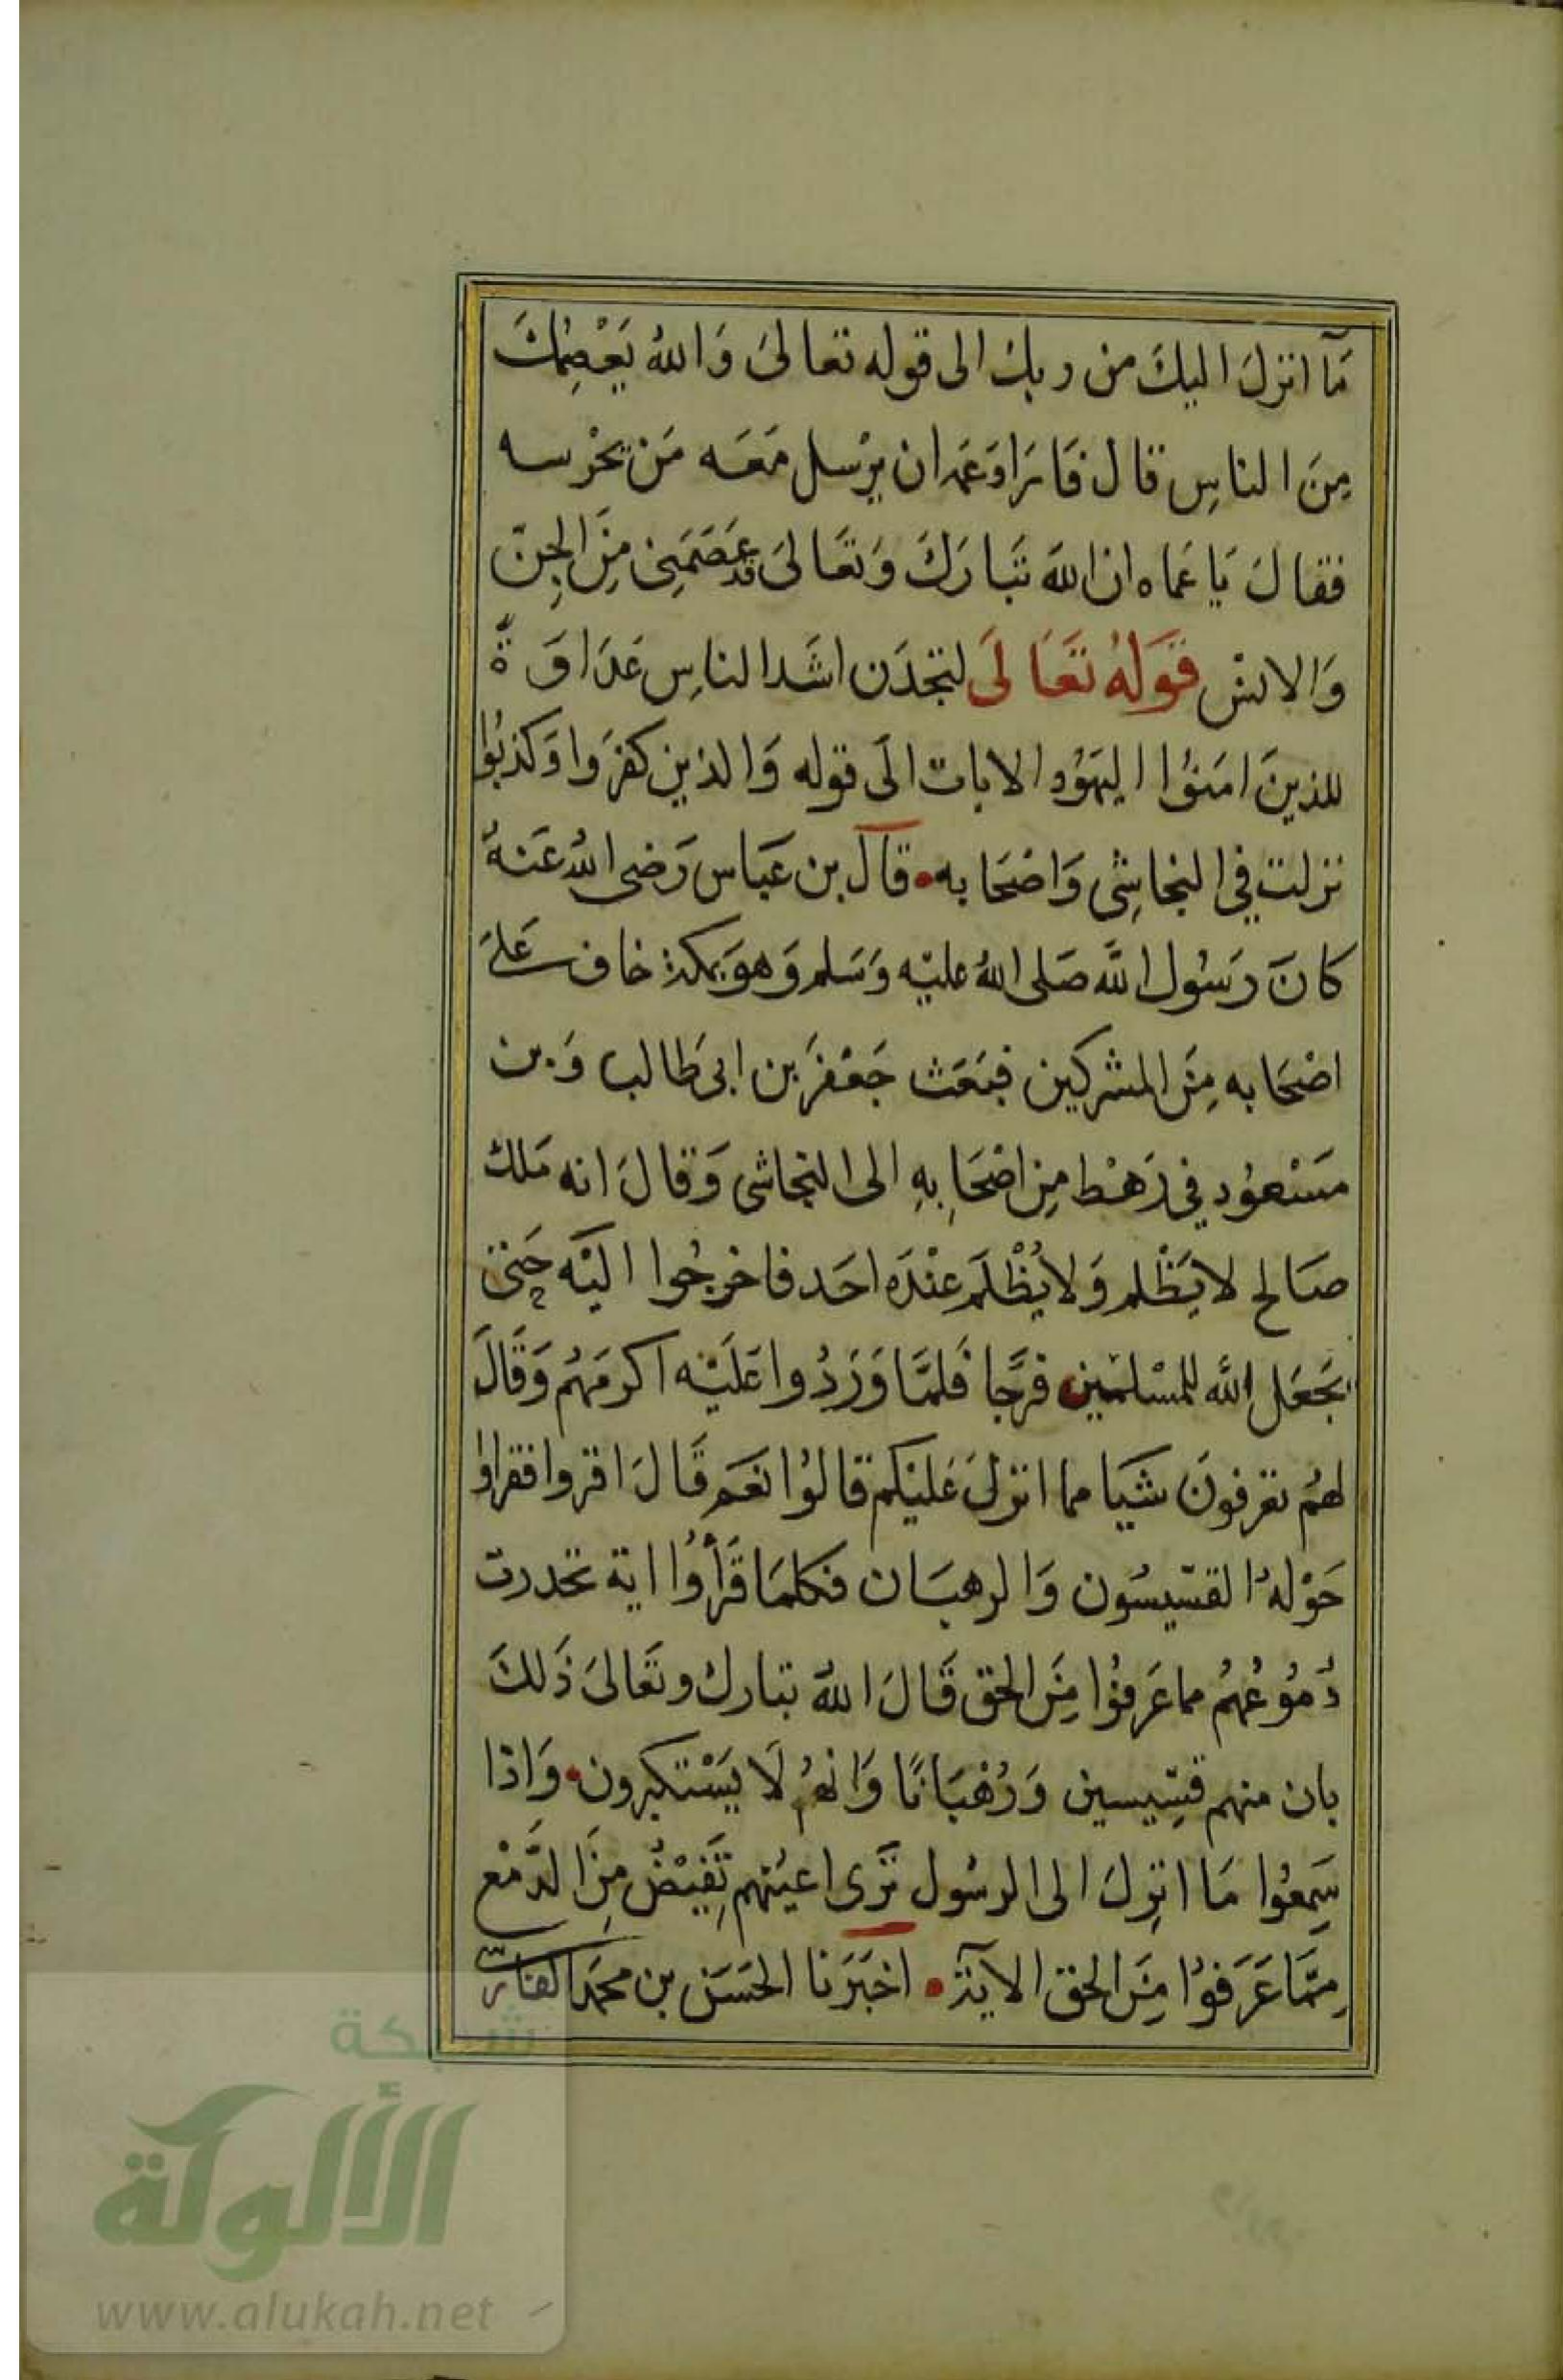 مَآ انزلَ اليكَ من ربك الى قوله تعالىَ وَاللهُ يَعْصِمُكَ
مِنَ الناسِ قال فَارَاوَعَمه ان يرْسل مَعَه مَن يحْرسه
فقالَ يَا عَماه ان اللهَ تبَارَكَ وَتعَالىَ قد عَصَمَنِى مِنَ الجِنّ
وَالانسْ قوَلهُ تعَالىَ لتجدَن اشَد الناسِ عَدَاوَةً
للذينَ امَنوُا اليَهوُد الايات الىَ قوله وَالذين كفرَوا وَكذبوُا
نزلت في النجاشِى وَاصْحَابه • قالَ بن عَبَاس رَضى اللهُ عَنهُ
كانَ رَسوُل اللهَّ صَلى اللهُ عليْه وَسَلم وَهوَ بمكة خاف عَلىَ
اصْحَابه مِنَ المشركين فبَعَث جَعْفرَ بن ابى طَالب وَبن
مَسْعوُد في رَهْط مِن اصْحَابِهِ الى النجاشى وَقالَ انه مَلك
صَالح لا يَظْلم وَلا يُظْلَم عِنْدَه احَد فاخرجُوا اليَْه حَتى
يجَعَل الله للمسْلمين فرَجًا فلَمَّا وَرَدُوا عَليَْه اكرمَهُم وَقَالَ
لهمُ تعرفونَ شَيَا مما انزلَ عَليْكم قالوُا نعَم قَالَ اقروا فقراوا
حَوْلهُ القسّيسُون وَالرهبَان فكلمَا قَرَأوُا اية تحدرت
دُموُعُهُم مما عَرفوُا مِنَ الحق قَالَ اللهُ تبارك وتَعَالىَ ذَلكَ
بان منهم قسِّيسين وَرُهْبَانًا وَانهمُ لَا يَسْتكبرون • وَاذا
سَمِعوُا مَا انزِلَ الى الرسُول ترَى اعينهم تَفِيْضُ مِنَ الدَّمْع
مِمَّا عَرَفوُا مِنَ الحق الايَة • اخبَرَنا الحَسَن بن محمَد الفارسى
شبكة
الألوكة
www.alukah.net